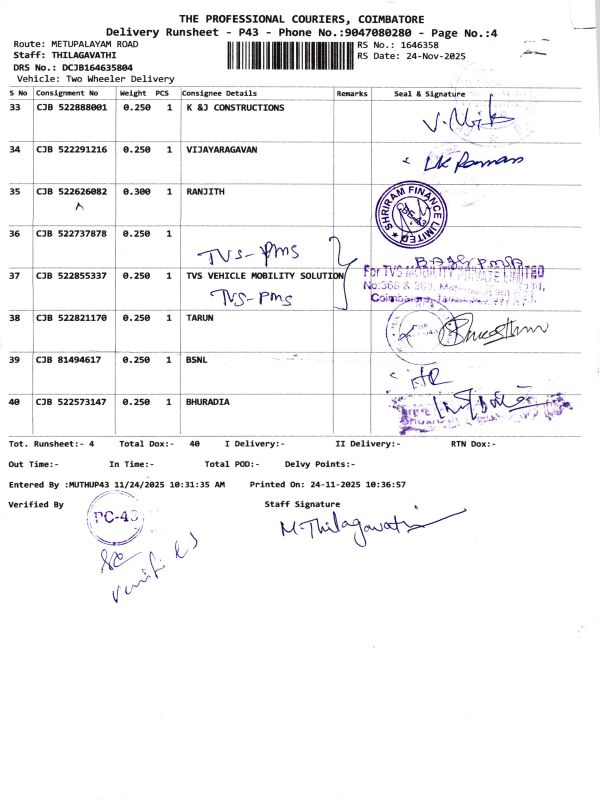 THE PROFESSIONAL COURIERS, COIMBATORE
Delivery Runsheet - P43 - Phone No.:9047080280 - Page No.:4
Route: METUPALAYAM ROAD RS No.: 1646358
Staff: THILAGAVATHI RS Date: 24-Nov-2025
DRS No.: DCJB164635804
Vehicle: Two Wheeler Delivery
S No Consignment No Weight PCS Consignee Details Remarks Seal & Signature
33 CJB 522888001 0.250 1 K &J CONSTRUCTIONS
34 CJB 522291216 0.250 1 VIJAYARAGAVAN
35 CJB 522626082 0.300 1 RANJITH
SHRIRAM FINANCE LIMITED
36 CJB 522737878 0.250 1
TVS-PMS
37 CJB 522855337 0.250 1 TVS VEHICLE MOBILITY SOLUTION
For TVS MOBILITY PRIVATE LIMITED
TVS-PMS
38 CJB 522821170 0.250 1 TARUN
39 CJB 81494617 0.250 1 BSNL
40 CJB 522573147 0.250 1 BHURADIA
Tot. Runsheet:- 4 Total Dox:- 40 I Delivery:- II Delivery:- RTN Dox:-
Out Time:- In Time:- Total POD:- Delvy Points:-
Entered By :MUTHUP43 11/24/2025 10:31:35 AM Printed On: 24-11-2025 10:36:57
Verified By Staff Signature
PC-43
M.Thilagavathi